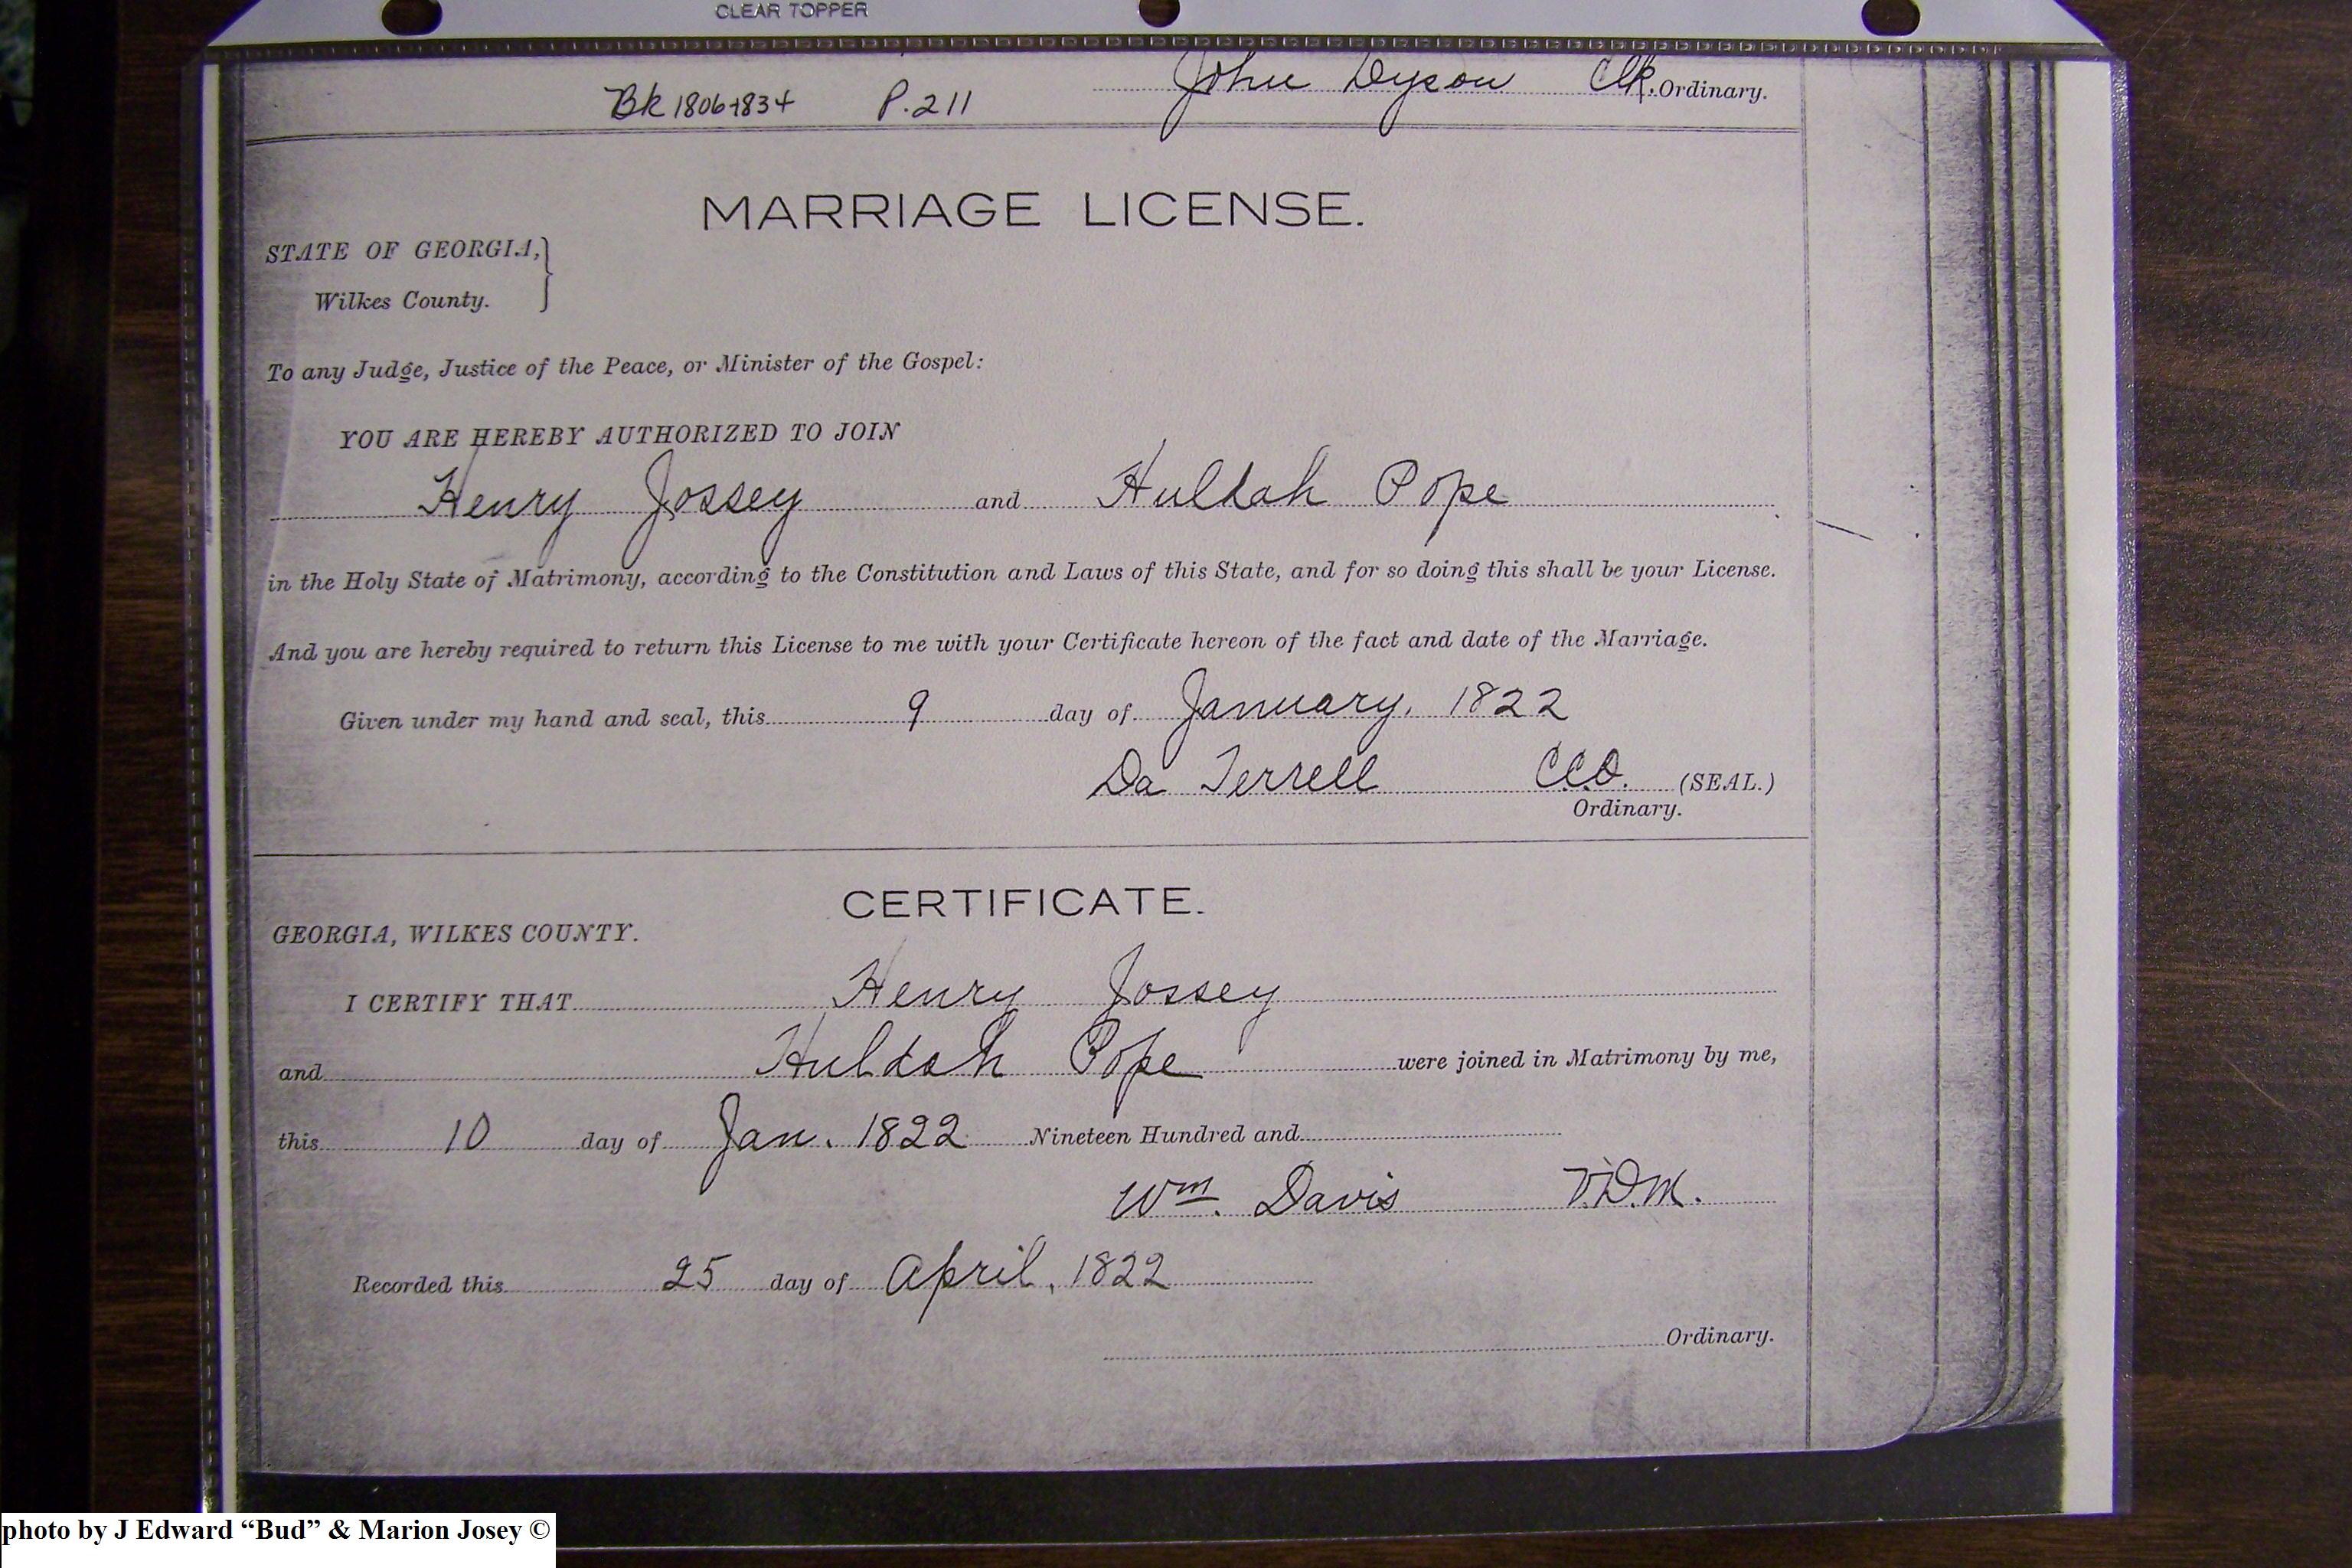 CLEAR TOPPER
John Dyson Clk. Ordinary.
Bk 1806-1834 P. 211
MARRIAGE LICENSE.
STATE OF GEORGIA,
Wilkes County.
To any Judge, Justice of the Peace, or Minister of the Gospel:
YOU ARE HEREBY AUTHORIZED TO JOIN
Henry Jossey and Huldah Pope
in the Holy State of Matrimony, according to the Constitution and Laws of this State, and for so doing this shall be your License.
And you are hereby required to return this License to me with your Certificate hereon of the fact and date of the Marriage.
Given under my hand and seal, this 9 day of January, 1822
Da Terrell C.C.O. (SEAL.)
Ordinary.
CERTIFICATE.
GEORGIA, WILKES COUNTY.
I CERTIFY THAT Henry Jossey
and Huldah Pope were joined in Matrimony by me,
this 10 day of Jan. 1822 Nineteen Hundred and
Wm. Davis V.D.M.
Recorded this 25 day of April, 1822
Ordinary.
photo by J Edward “Bud” & Marion Josey ©